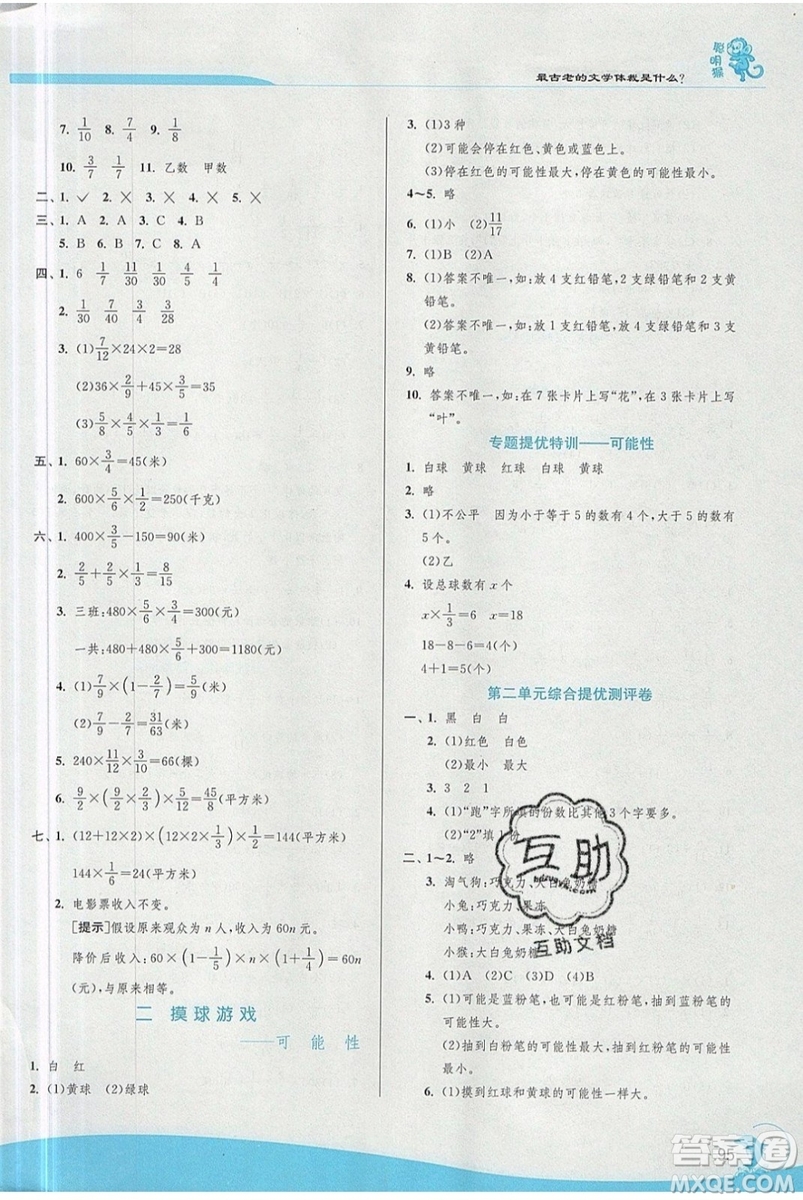 聪明猴
最古老的文学体裁是什么?
7. 1/10 8. 7/4 9. 1/8
10. 3/7 1/7 11. 乙数 甲数
二、1. ✓ 2. ✗ 3. ✗ 4. ✗ 5. ✗
三、1. A 2. A 3. C 4. B
5. B 6. B 7. C 8. A
四、1. 6 1/7 11/30 1/30 4/5
2. 1/30 7/40 3/4 3/28
3. (1)7/12×24×2=28
(2)36×2/9+45×3/5=35
(3)5/8×4/5×1/3=1/6
五、1. 60×3/4=45(米)
2. 600×5/6×1/2=250(千克)
六、1. 400×3/5-150=90(米)
2. 2/5+2/5×1/3=8/15
3. 三班:480×5/6×3/4=300(元)
一共:480+480×5/6+300=1180(元)
4. (1)7/9×(1-2/7)=5/9(米)
(2)7/9-2/7=31/63(米)
5. 240×11/12×3/10=66(棵)
6. 9/2×(9/2×2/3-1/2)=45/8(平方米)
七、1. (12+12×2)×(12×1/3)×1/2=144(平方米)
144×1/6=24(平方米)
2. 电影票收入不变。
[提示]假设原来观众为 n 人,收入为 60n 元。
降价后收入:60×(1-1/5)×n×(1+1/4)=60n
(元),与原来相等。
二 摸球游戏
——可能性
1. 白 红
2. (1)黄球 (2)绿球
3. (1)3种
(2)可能会停在红色、黄色或蓝色上。
(3)停在红色的可能性最大,停在黄色的可能性最小。
4～5. 略
6. (1)小 (2)11/17
7. (1)B (2)A
8. (1)答案不唯一,如:放 4 支红铅笔,2 支绿铅笔,2 支黄
铅笔。
(2)答案不唯一,如:放 2 支红铅笔,1 支绿铅笔,5 支
黄铅笔。
9. 略
10. 答案不唯一,如:在 7 张卡片上写“花”,在 3 张卡片上写
“叶”。
专题提优特训——可能性
1. 白球 黄球 红球 白球 黄球
2. 略
3. (1)不公平 因为小于等于 5 的数有 4 个,大于 5 的数有
5 个。
(2)乙
4. 设总球数有 x 个
x×1/3=6 x=18
18-8-6=4(个)
4+1=5(个)
第二单元综合提优测评卷
一、1. 黑 白 白
2. (1)红色 白色
(2)最小 最大
3. 3 2 1
4. (1)“跑”字所填的份数比其他3个字要多。
(2)“2”填1份。
二、1～2. 略
3. 淘气狗:巧克力、大白兔奶糖
小兔:巧克力、果冻
小鸭:巧克力、果冻、大白兔奶糖
小猴:大白兔奶糖
4. (1)A (2)C (3)D (4)B
5. (1)可能是蓝粉笔,也可能是红粉笔,抽到蓝粉笔的
可能性大。
(2)抽到白粉笔的可能性大,抽到红粉笔的可能性
最小。
6. (1)摸到红球和黄球的可能性一样大。
互助
互助文档
95
答案圈
MXQE.COM